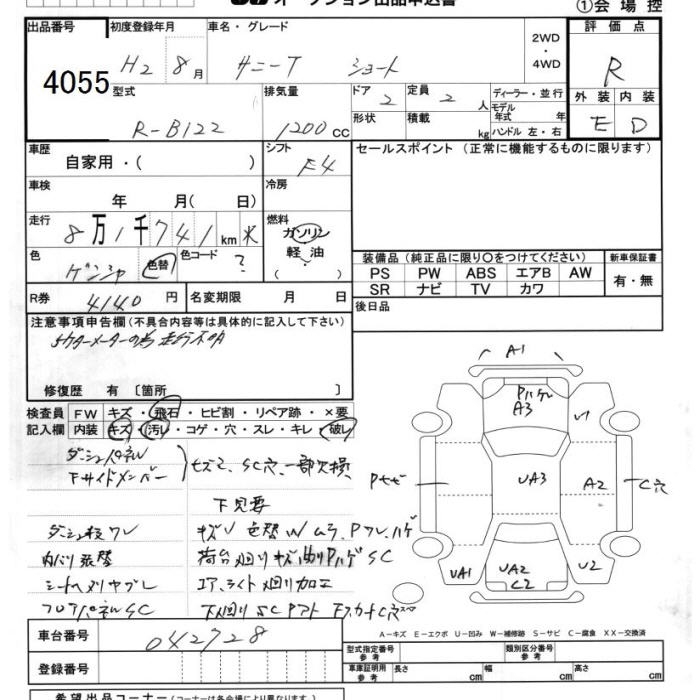 オークション出品申込書
①会場控
出品番号
4055
初度登録年月
H2 8月
車名・グレード
サニーT ショート
2WD
・
4WD
評価点
R
外装 内装
E D
型式
R-B122
排気量
1200 cc
ドア
2
定員
2 人
ディーラー・並行
モデル
年式 年
形状
積載 kg
ハンドル 左・右
車歴
自家用・( )
シフト
F4
セールスポイント (正常に機能するものに限ります)
車検
年 月( 日)
冷房
走行
8万1千741km ✕
燃料
ガソリン
軽油
( )
色
ゲンシャ 色替
色コード
?
装備品(純正品に限り○をつけてください)
新車保証書
PS PW ABS エアB AW
有・無
SR ナビ TV カワ
R券
4140円
名変期限 月 日
後日品
注意事項申告欄(不具合内容等は具体的に記入して下さい)
メーターの為 走行不明
修復歴 有 〔箇所 〕
検査員
記入欄
FW キズ・飛石・ヒビ割・リペア跡・×要
内装 キズ・汚レ・コゲ・穴・スレ・キレ・破レ
ダッシュパネル
Fサイドメンバー
キズミ、SC穴、一部欠損
下見要
ダッシュ板ワレ
キズU 色替Wムラ、Pワレ、ハゲ
内バリ張替
荷台廻りキズ 曲り Pハゲ SC
シートヘタリヤブレ
コア、ライト廻り加工
フロアパネルSC
下廻りSC
A1
Pハゲ
A3
U1
Pキズ
UA3
A2
C穴
UA1
UA2
C2
U2
スペ
A－キズ E－エクボ U－凹み W－補修跡 S－サビ C－腐食 XX－交換済
車台番号
042728
登録番号
型式指定番号
参考
類別区分番号
参考
車庫証明用
参考
長さ cm
幅 cm
高さ cm
希望出品コーナー(コーナーは各会場により異なります)